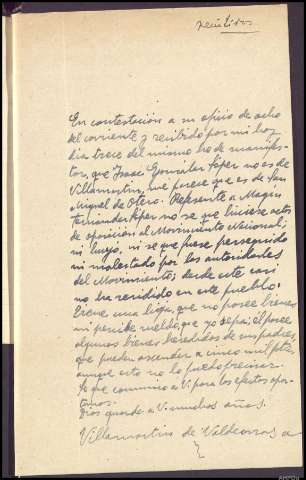 En contestación a su oficio de ocho
del corriente y recibido por mi hoy
dia trece del mismo he de manifes-
tar, que Isaac González López no es de
Villamartin, me parece que es de San
Miguel de Otero. Referente a Magin
Fernandez López no se que hiciese actos
de oposición al Movimiento Nacional,
ni huyó, ni se que fuese perseguido
ni molestado por las autoridades
del Movimiento; desde este casi
no ha residido en este pueblo.
tiene una hija, que no posee bienes
ni percibe sueldo, que yo sepa; él posee
algunos bienes heredados de sus padres,
que pueden ascender a cinco mil pts,
aunque esto no lo puedo precisar.
Lo que comunico a V. para los efectos opor-
tunos.
Dios guarde a V. muchos años.
Villamartin de Valdeorras a